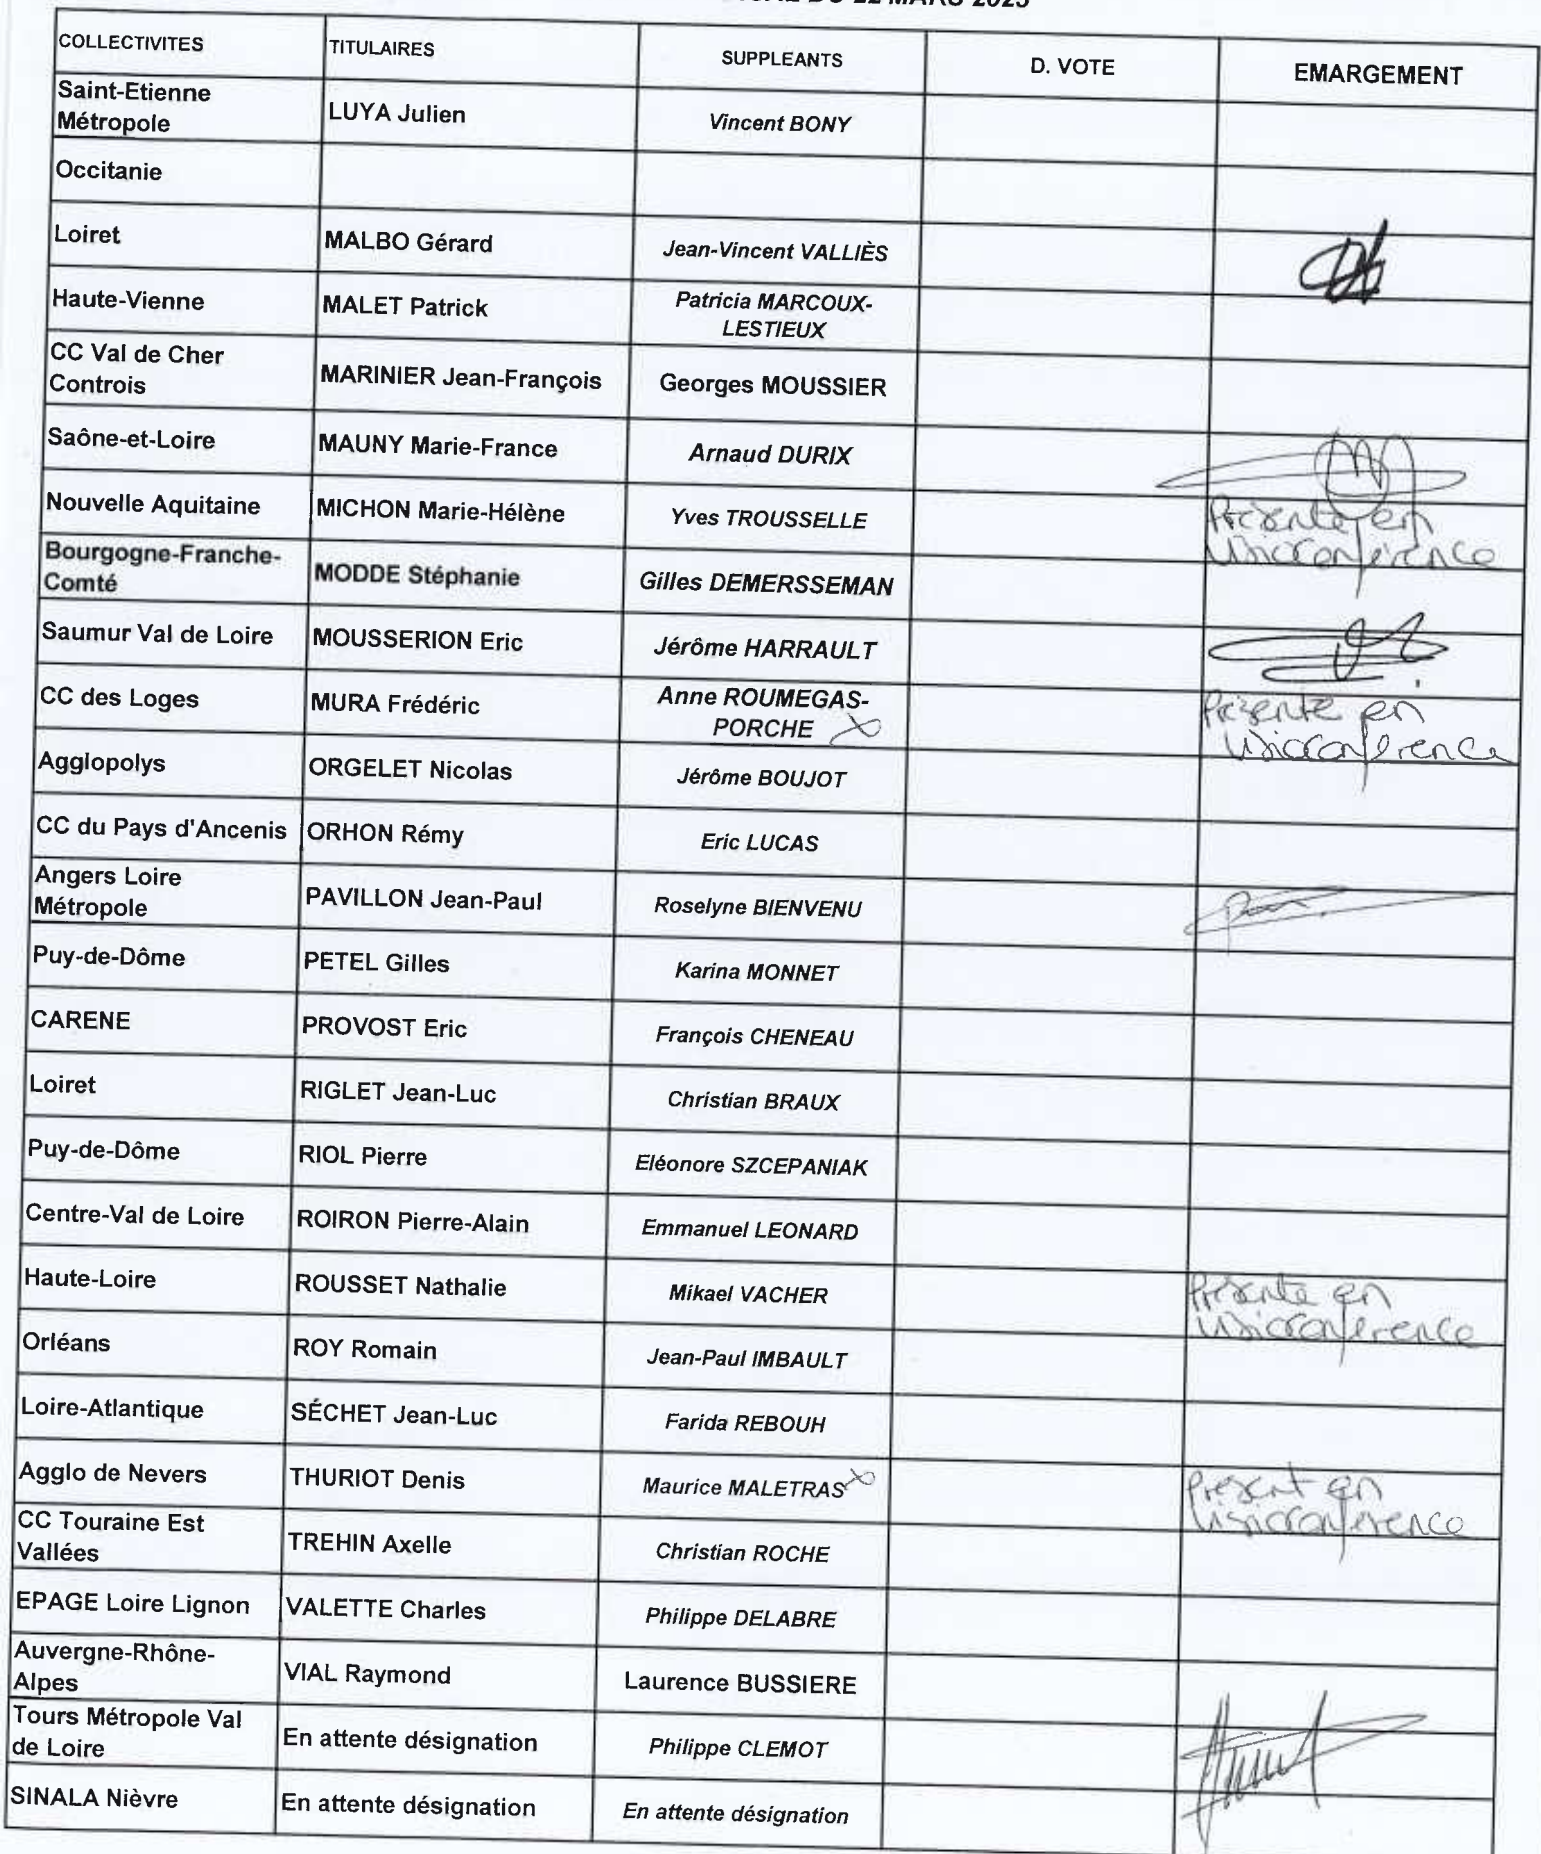 DU 22 MARS 2023
COLLECTIVITES TITULAIRES SUPPLEANTS D. VOTE EMARGEMENT
Saint-Etienne
Métropole LUYA Julien Vincent BONY
Occitanie
Loiret MALBO Gérard Jean-Vincent VALLIÈS
Haute-Vienne MALET Patrick Patricia MARCOUX-
LESTIEUX
CC Val de Cher
Controis MARINIER Jean-François Georges MOUSSIER
Saône-et-Loire MAUNY Marie-France Arnaud DURIX
Nouvelle Aquitaine MICHON Marie-Hélène Yves TROUSSELLE Présente en
visioconférence
Bourgogne-Franche-
Comté MODDE Stéphanie Gilles DEMERSSEMAN
Saumur Val de Loire MOUSSERION Eric Jérôme HARRAULT
CC des Loges MURA Frédéric Anne ROUMEGAS-
PORCHE X Présente en
visioconférence
Agglopolys ORGELET Nicolas Jérôme BOUJOT
CC du Pays d'Ancenis ORHON Rémy Eric LUCAS
Angers Loire
Métropole PAVILLON Jean-Paul Roselyne BIENVENU
Puy-de-Dôme PETEL Gilles Karina MONNET
CARENE PROVOST Eric François CHENEAU
Loiret RIGLET Jean-Luc Christian BRAUX
Puy-de-Dôme RIOL Pierre Eléonore SZCEPANIAK
Centre-Val de Loire ROIRON Pierre-Alain Emmanuel LEONARD
Haute-Loire ROUSSET Nathalie Mikael VACHER Présente en
visioconférence
Orléans ROY Romain Jean-Paul IMBAULT
Loire-Atlantique SÉCHET Jean-Luc Farida REBOUH
Agglo de Nevers THURIOT Denis Maurice MALETRAS X Présent en
visioconférence
CC Touraine Est
Vallées TREHIN Axelle Christian ROCHE
EPAGE Loire Lignon VALETTE Charles Philippe DELABRE
Auvergne-Rhône-
Alpes VIAL Raymond Laurence BUSSIERE
Tours Métropole Val
de Loire En attente désignation Philippe CLEMOT
SINALA Nièvre En attente désignation En attente désignation